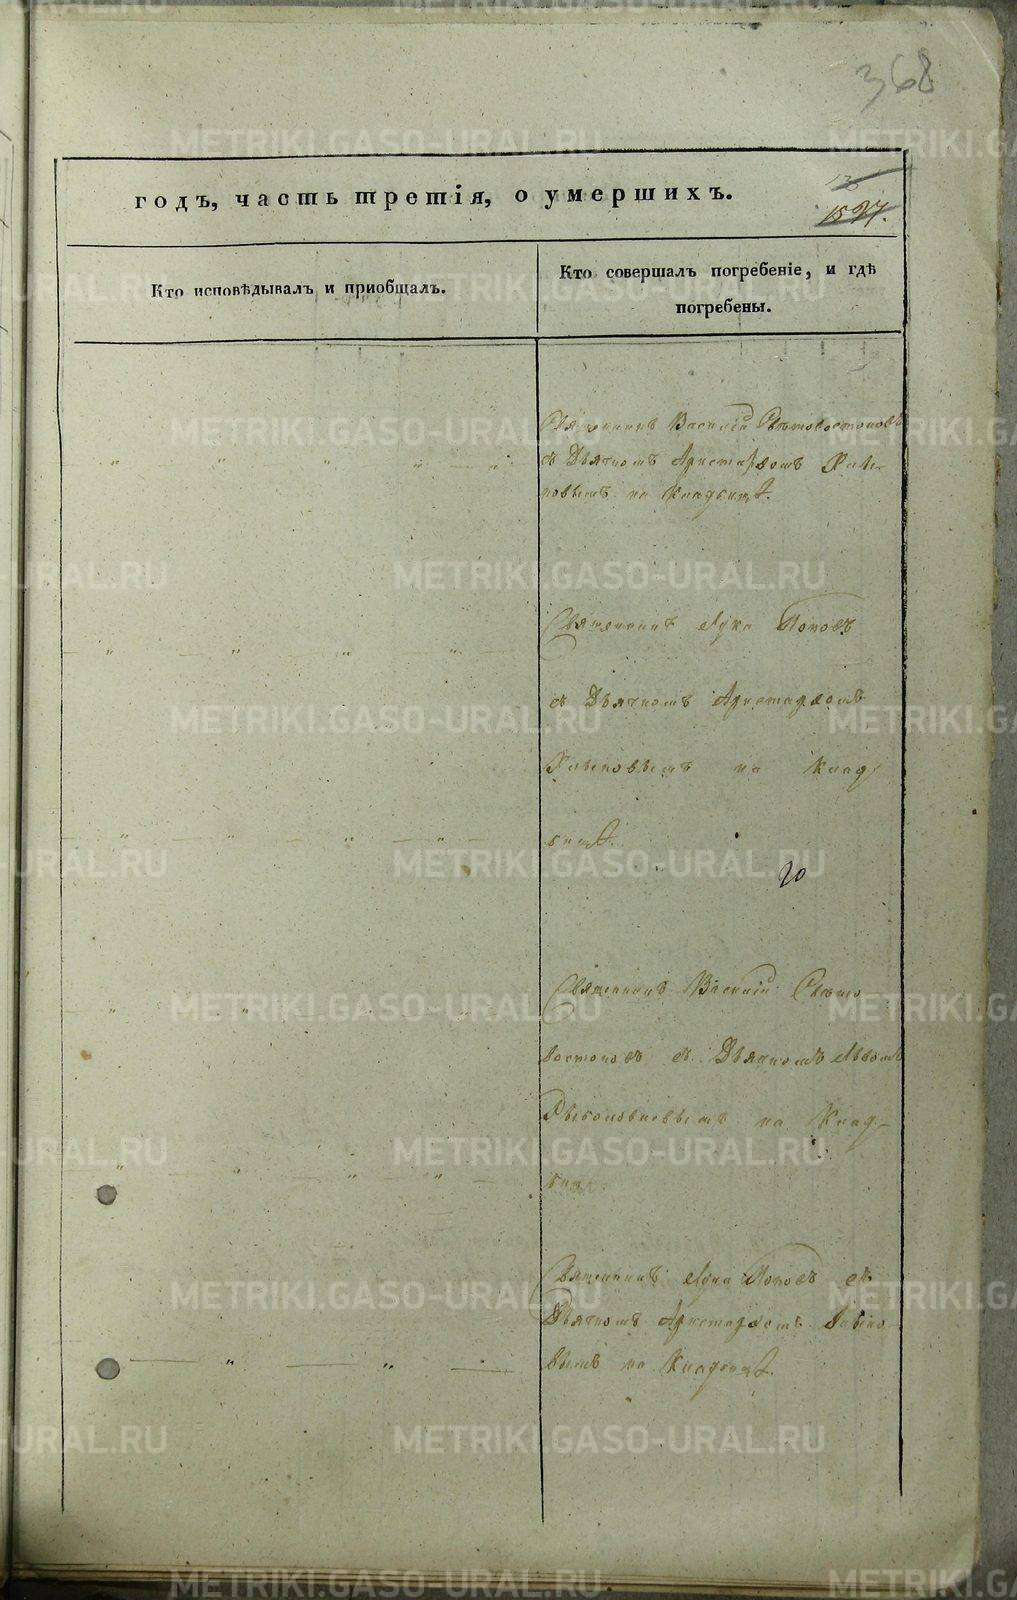 368
годъ, часть третія, о умершихъ.
1527.
Кто исповѣдывалъ и приобщалъ.
Кто совершалъ погребеніе, и гдѣ
погребены.
Священникъ Василій Свѣтовостоковъ
съ Дьячкомъ Аристархомъ
на кладбищѣ.
Священникъ Лука Поповъ
съ Дьячкомъ Аристархомъ
на клад
бищѣ.
20
Священникъ Василій Свѣто
востоковъ съ Дьячкомъ Львомъ
на Клад-
бищ.
Священникъ Лука Поповъ съ
Дьячкомъ Аристархомъ
на Кладбищѣ.
METRIKI.GASO-URAL.RU